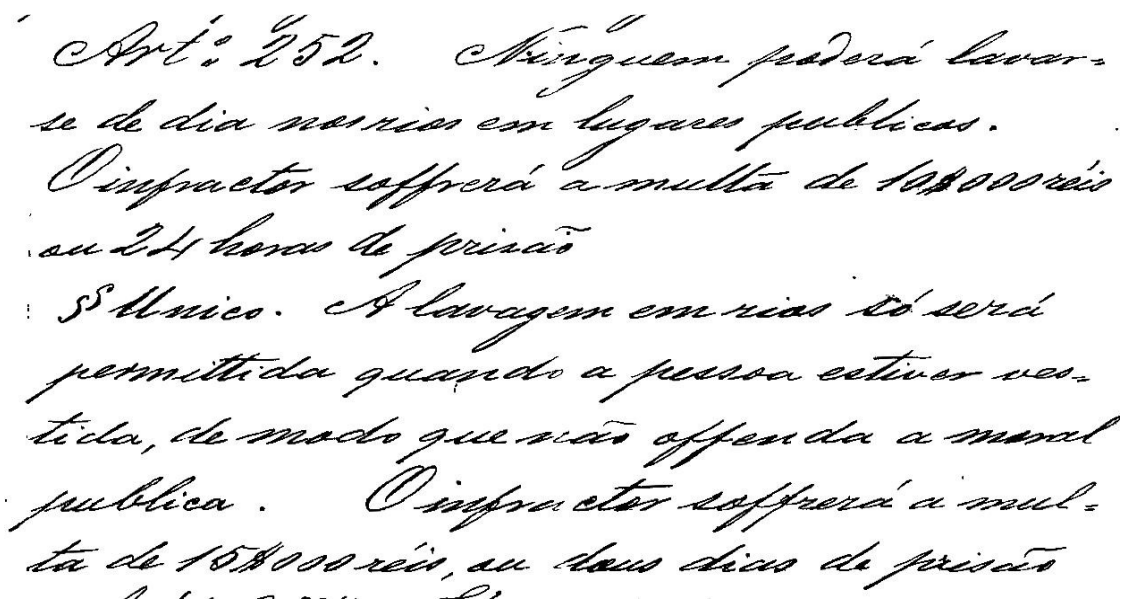 Artº 252. Ninguem poderá lavar=
se de dia nos rios em lugares publicos.
O infractor soffrerá a multa de 10$000 réis
ou 24 horas de prisão
§ Unico. A lavagem em rios só será
permittida quando a pessoa estiver ves=
tida, de modo que não offenda a moral
publica. O infractor soffrerá a mul=
ta de 15$000 réis, ou dous dias de prisão